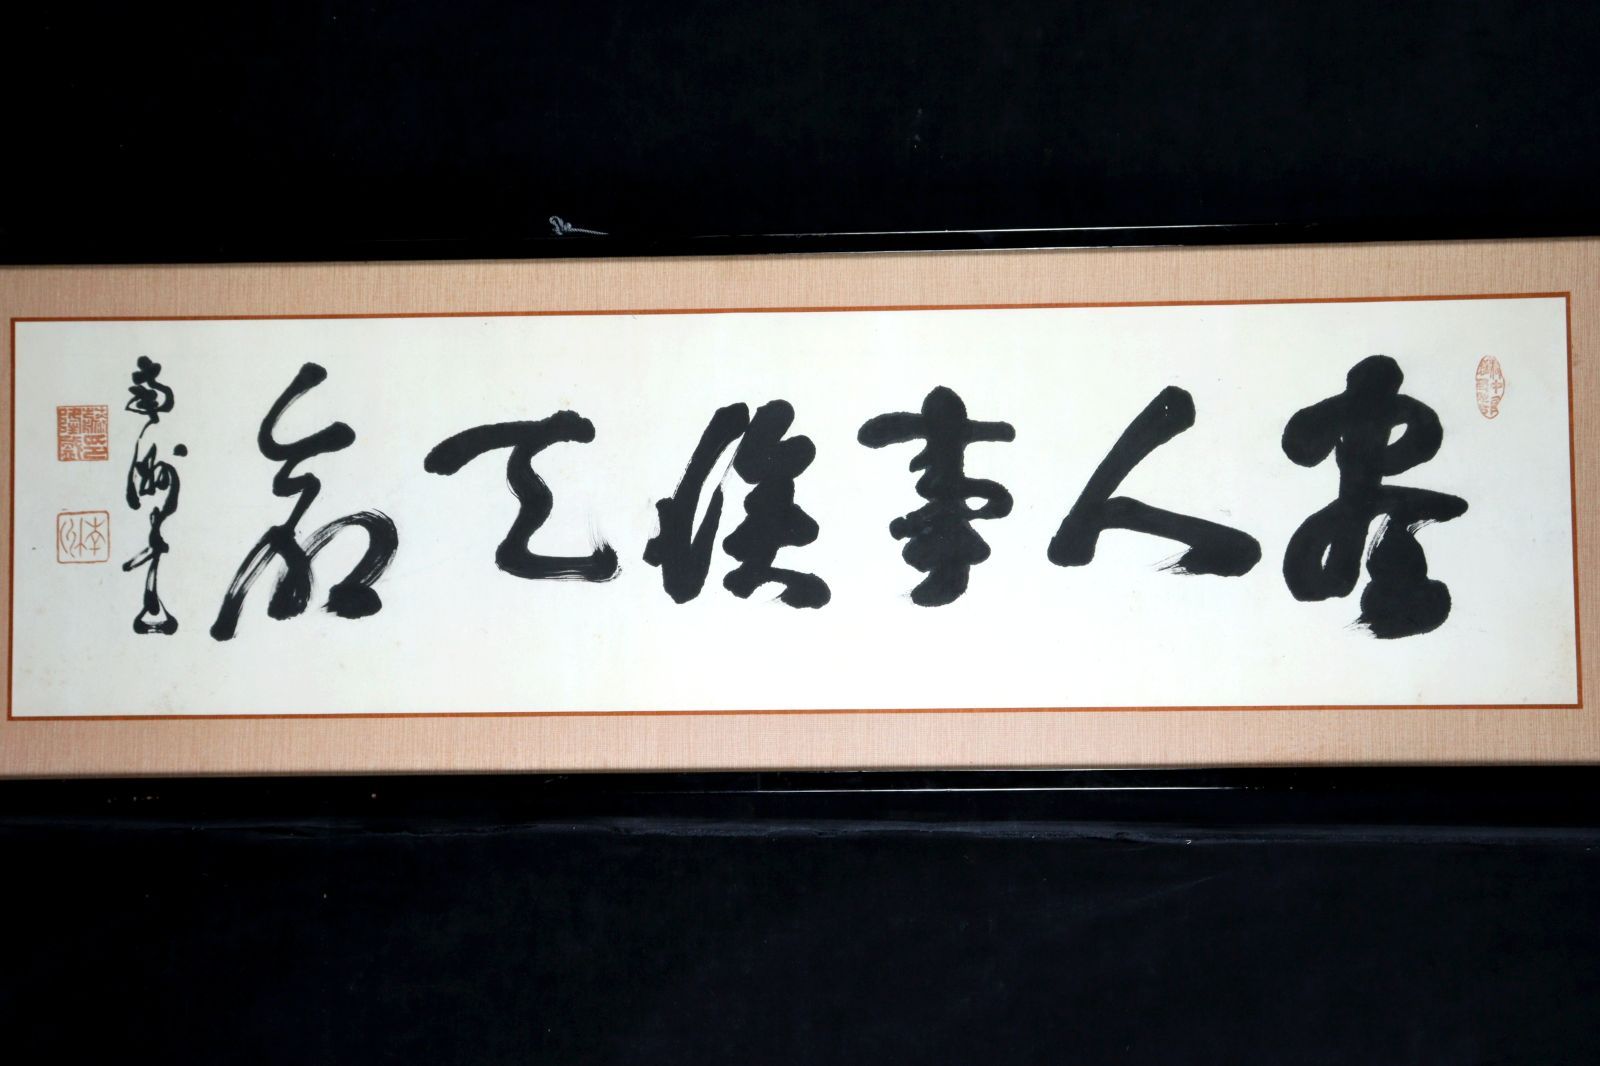 盡人事候天命
南洲書